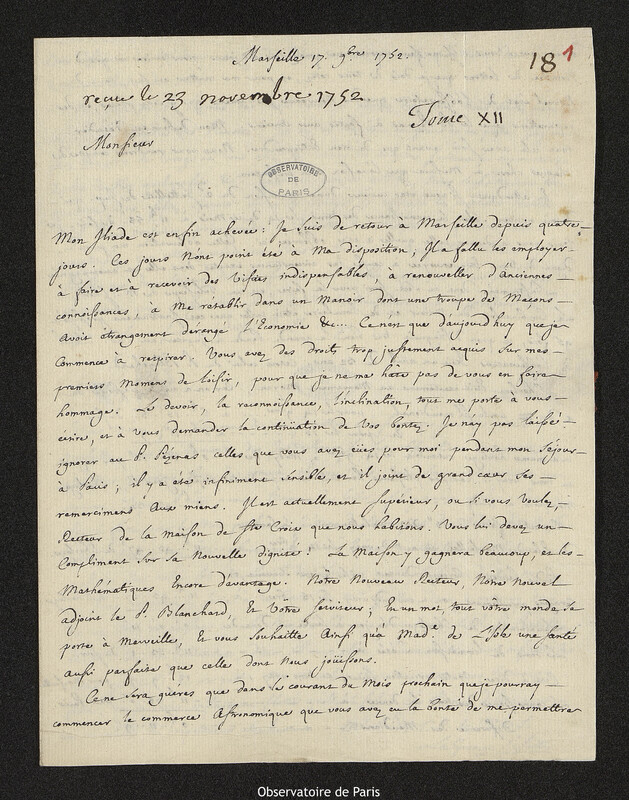 Marseille 17. 9bre 1752.
18 1
reçue le 23 novembre 1752
Tome XII
Monsieur
OBSERVATOIRE
DE
PARIS
Mon Iliade est enfin achevée: Je suis de retour à Marseille depuis quatre
jours. Ces jours n'ont point été à ma disposition, Il a fallu les employer
à faire et à recevoir des visites indispensables, à renouveller d'anciennes
connoissances, à me retablir dans un Manoir dont une troupe de Maçons
avoit étrangement dérangé l'Economie &c... Ce n'est que d'aujourd'huy que je
commence à respirer. Vous avez des droits trop justement acquis sur mes
premiers momens de loisir, pour que je ne me hâte pas de vous en faire
hommage. Le devoir, la reconnoissance, l'inclination, tout me porte à vous
ecrire, et à vous demander la continüation de vos bontez. Je n'ay pas laissé
ignorer au P. Pezenas celles que vous avez eües pour moi pendant mon séjour
à Paris; il y a été infiniment sensible, et il joint de grand cœur ses
remercimens aux miens. Il est actuellement Supérieur, ou si vous voulez,
Recteur de la maison de Ste Croix que nous habitons. Vous lui devez un
Compliment sur sa Nouvelle dignité! La Maison y gagnera beaucoup, et les
Mathématiques Encore d'avantage. Nôtre Nouveau Recteur, Nôtre nouvel
adjoint le P. Blanchard, Et Vôtre serviteur; En un mot, tout vôtre monde se
porte à Merveille, Et vous souhaitte Ainsi qu'à Made. de L'Isle une santé
aussi parfaite que celle dont Nous joüissons.
Ce ne sera guéres que dans le courant du Mois prochain que je pourray
commencer le commerce Astronomique que vous avez eu la bonté de me permettre
Observatoire de Paris